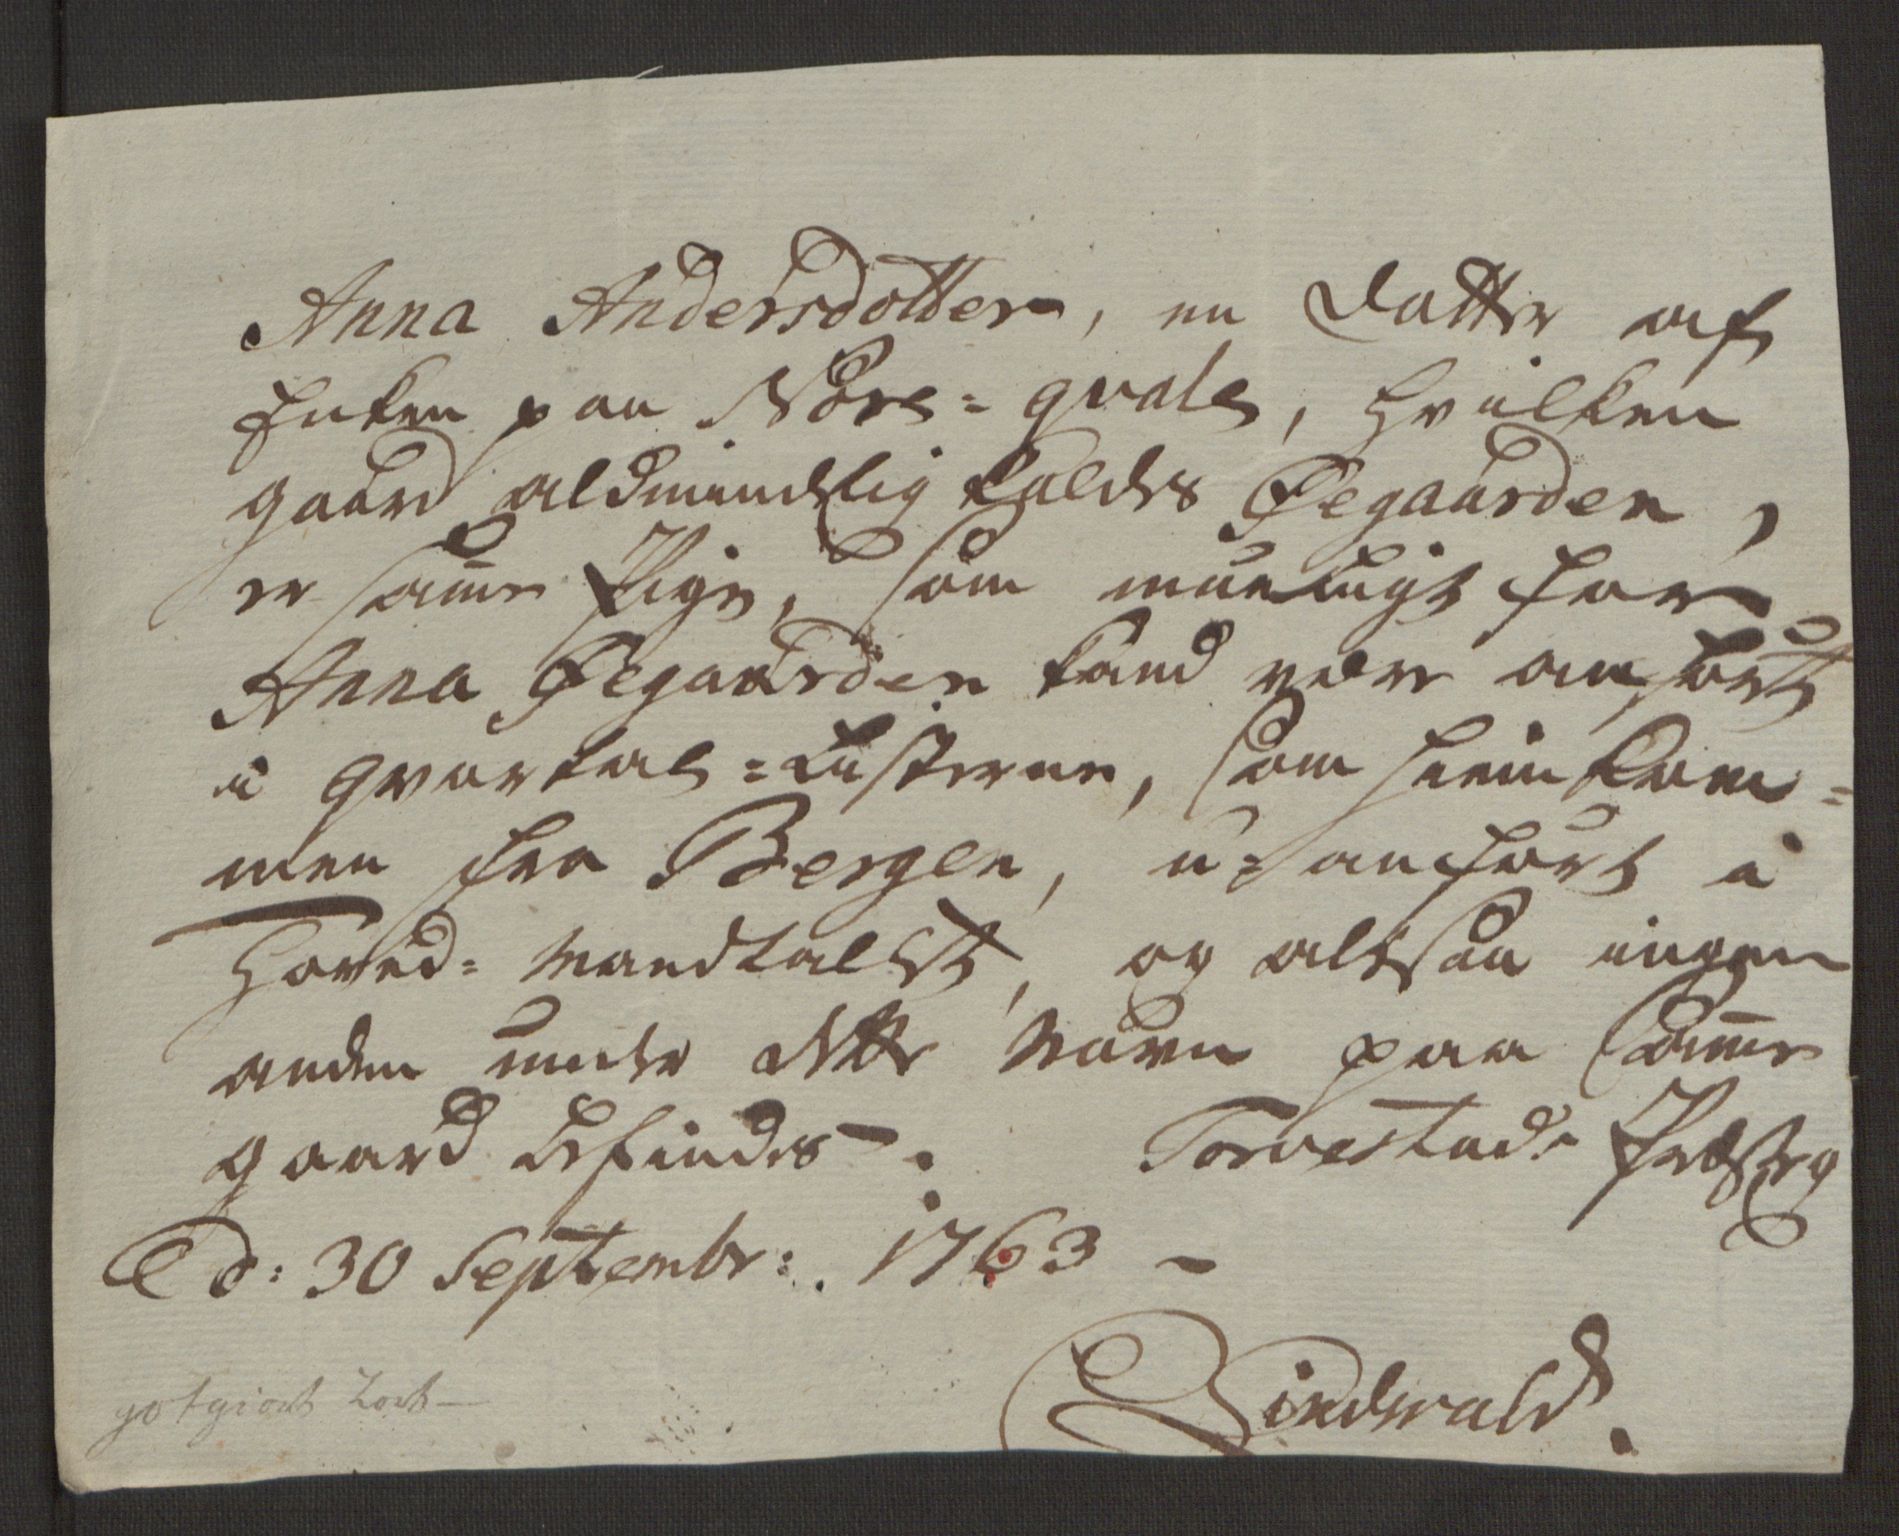 Anna Andersdotter, en Datter af
Enken paa Nöre=qvale, hvilken
gaard aldmindelig kaldes Øegaarden,
er samme Pige, som mueligt for
Anna Øegaarden kand være anført
i qvartal=Listerne, som hiemkom=
men fra Bergen, u=anført i
Hoved=Mandtallet, og altsaa ingen
anden under dette Navn paa samme
gaard befindes. Torvestad Præsteg
d: 30 Septembr: 1763
godtgiort